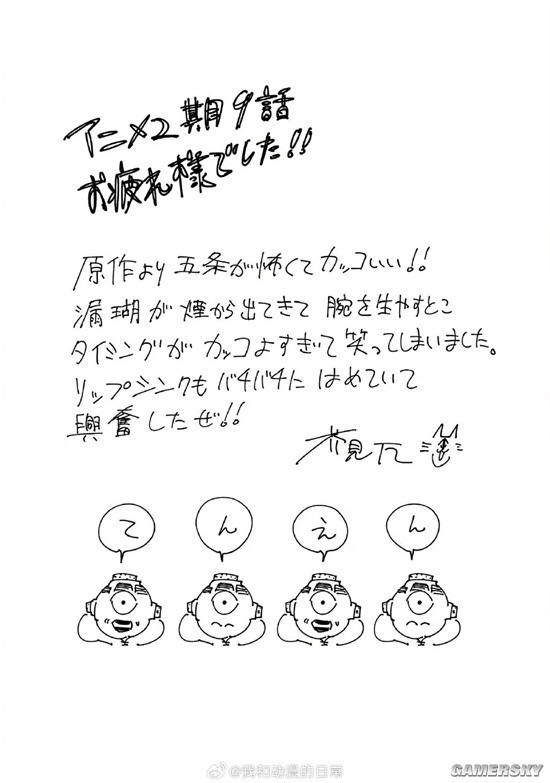 アニメ2期9話
お疲れ様でした!!
原作より五条が怖くてカッコいい!!
漏瑚が煙から出てきて 腕を生やすとこ
タイミングがカッコよすぎて笑ってしまいました。
リップシンクもバチバチにはめていて
興奮したぜ!!
芥見下々
て ん え ん
@我和动漫的日常
GAMERSKY